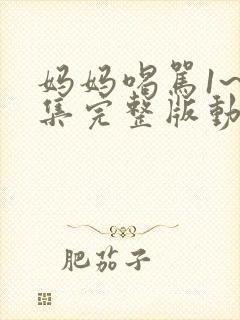 妈妈喝骂1~
集完整版動
肥茄子